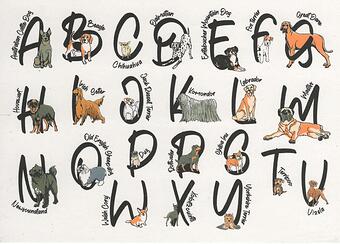 A B C D E F G
Australian Cattle Dog Beagle Chihuahua Dalmatian Entlebucher Mountain Dog Fox Terrier Great Dane
H I J K L M
Hovawart Irish Setter Jack Russell Terrier Komondor Labrador Mastiff
N O P R S T U
Newfoundland Old English Sheepdog Pug Rottweiler Shiba Inu
W X Y
Welsh Corgi Yorkshire Terrier Vizsla